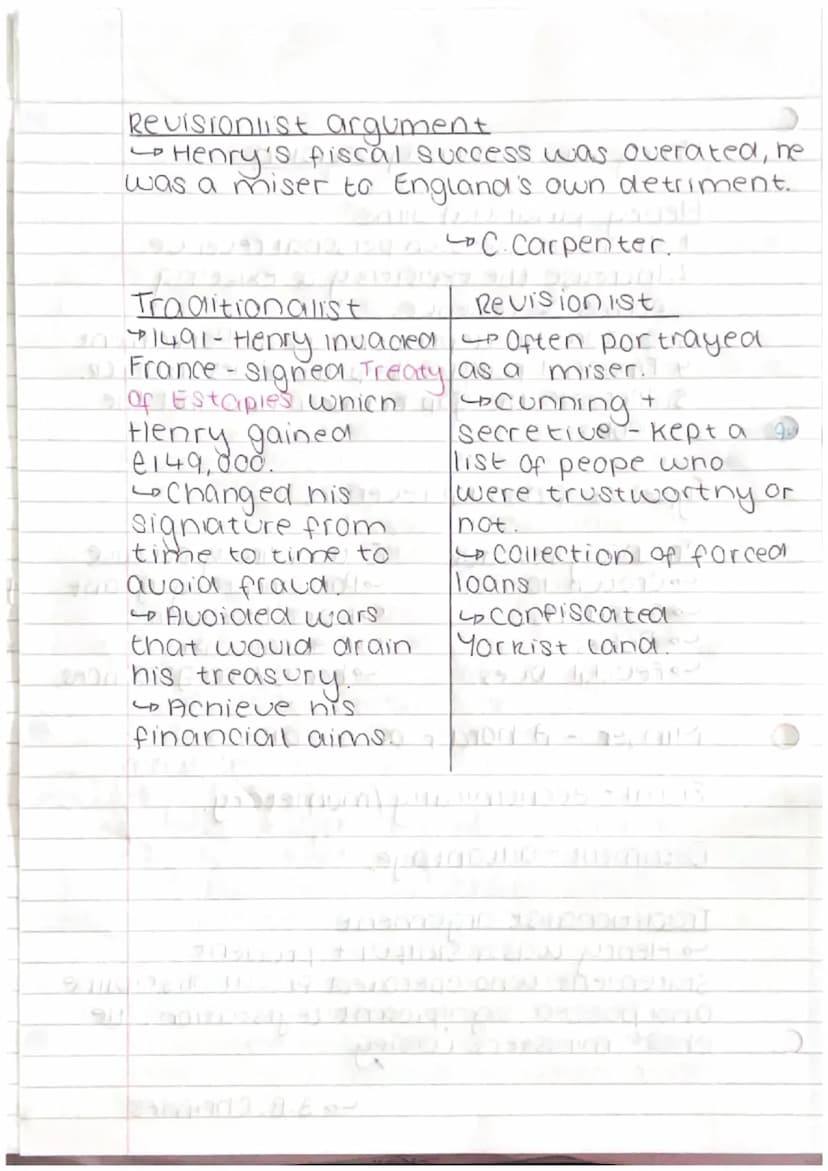 Revisionist argument
↳ Henry's fiscal success was overated, he
was a miser to England's own detriment.
↳ C. Carpenter.
Traditionalist
→ 1491 - Henry invaded
France - signed Treaty
of Estaples which
Henry gained
£149,000.
↳ Changed his
signature from
time to time to
avoid fraud.
↳ Avoided wars
that would drain
his treasury.
↳ Achieve his
financial aims.
Revisionist
↳ Often portrayed
as a miser.
↳ Cunning +
secretive - kept a
list of peope who
were trustworthy or
not.
↳ Collection of forced
loans
↳ Confiscated
Yorkist land.